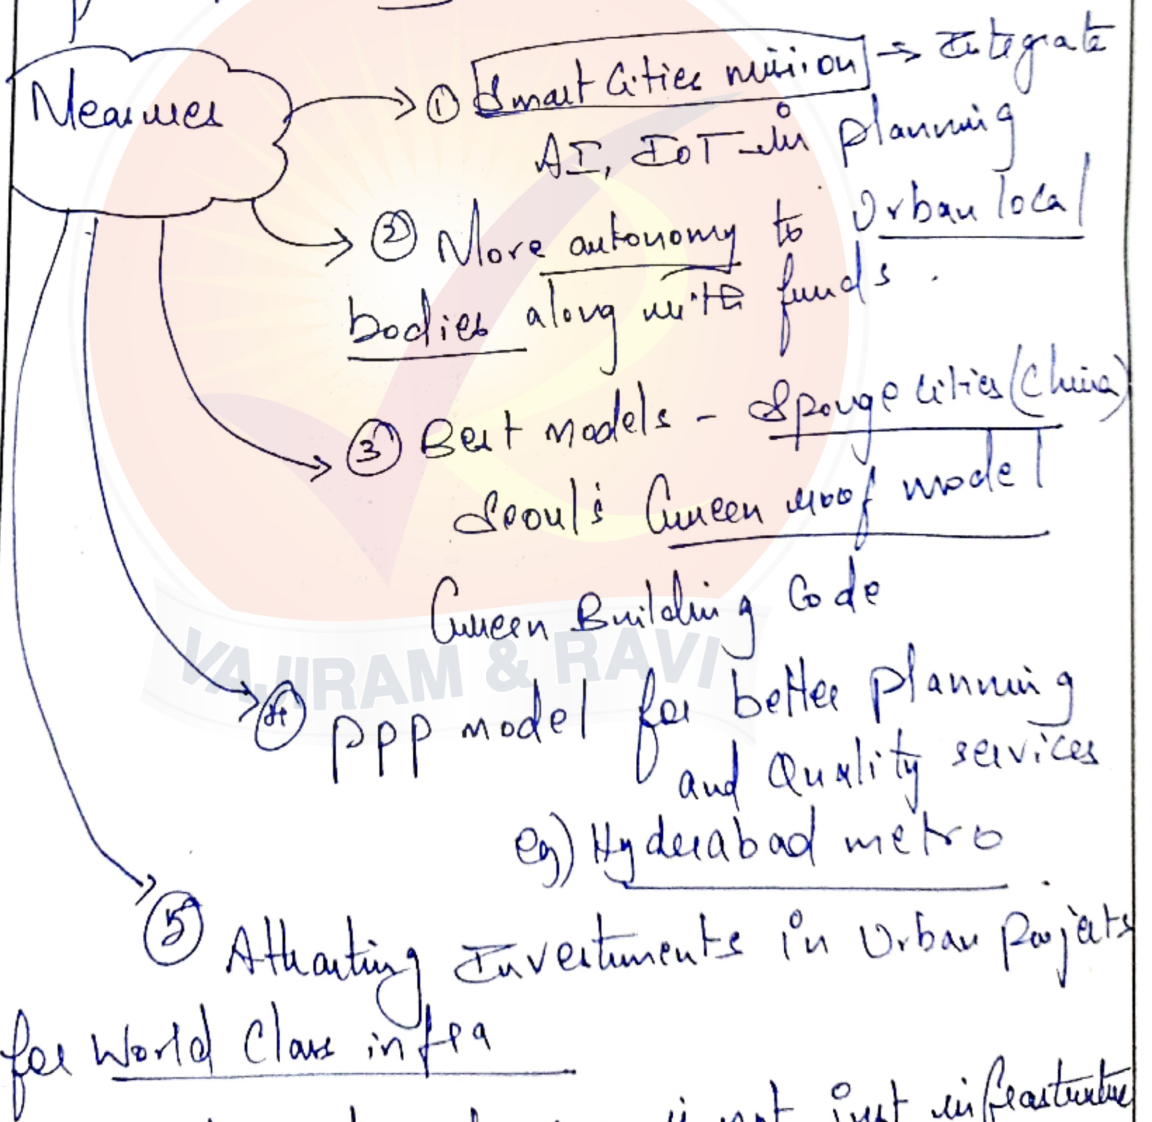 Measures
① Smart Cities mission → Integrate
AI, IoT in planning
② More autonomy to Urban local
bodies along with funds.
③ Best models - Sponge cities (China)
Seoul's Green roof model
Green Building Code
④ PPP model for better planning
and Quality services
eg) Hyderabad metro
⑤ Attracting Investments in Urban projects
for World Class infra
is not just infrastructure
VAJIRAM & RAVI